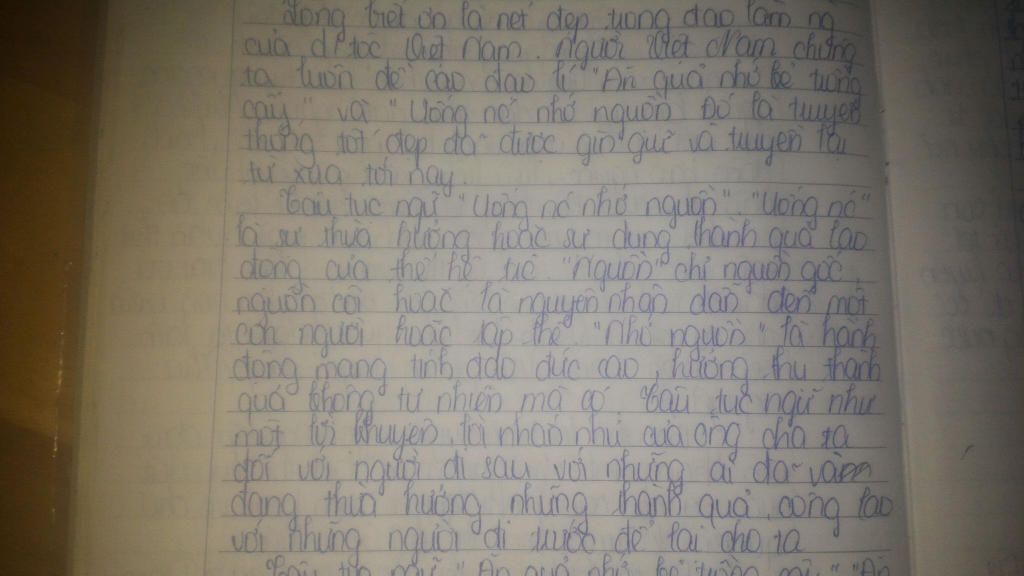 Lòng biết ơn là nét đẹp trong đạo làm ng
của dt tộc Việt Nam. Người Việt Nam chúng
ta luôn đề cao đạo lí "Ăn quả nhớ kẻ trồng
cây" và "Uống nớ nhớ nguồn Đó là truyền
thống tốt đẹp đã được gìn giữ và truyền lại
từ xưa tới nay.
Câu tục ngữ "Uống nớ nhớ nguồn" "Uống nớ"
là sự thừa hưởng hoặc sử dụng thành quả lao
động của thế hệ trc "Nguồn" chỉ nguồn gốc,
nguồn cội hoặc là nguyên nhân dẫn đến một
con người hoặc tập thể "Nhớ nguồn" là hành
động mang tính đạo đức cao, hưởng thụ thành
quả không tự nhiên mà có Câu tục ngữ như
một lời khuyên, lời nhắn nhủ của ông cha ta
đối với người đi sau với những ai đã và
đang thừa hưởng những thành quả, công lao
với những người đi trước để lại cho ta
Câu tục ngữ "Ăn quả nhớ kẻ trồng cây" "Ăn